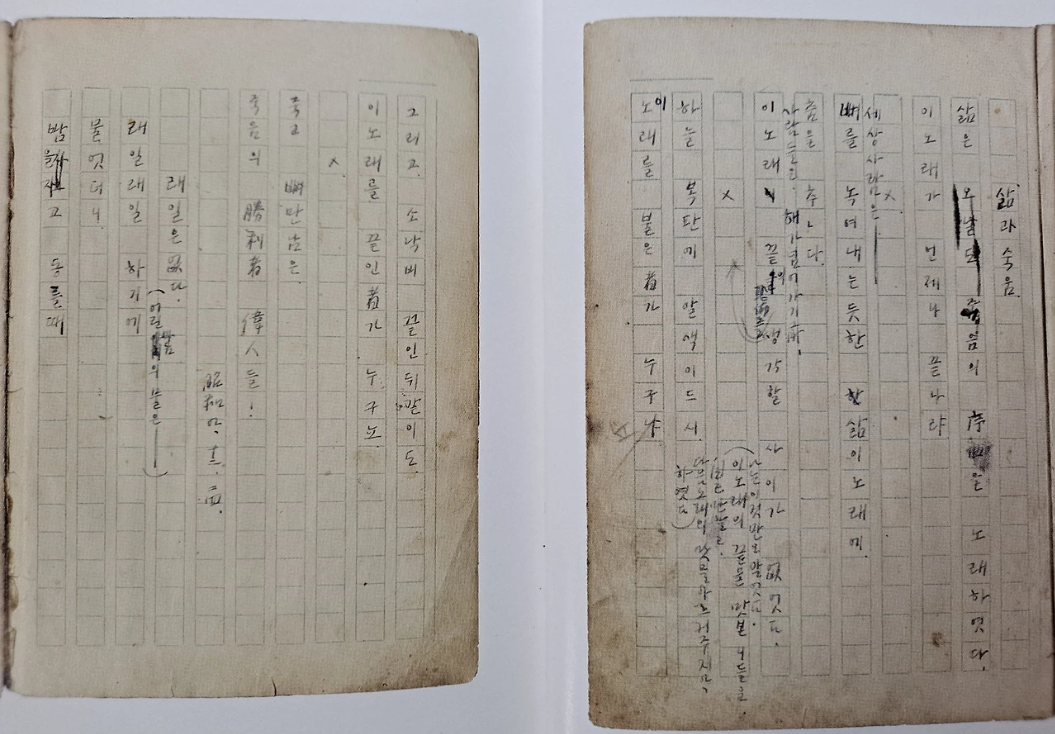 삶과죽음.
삶은 오날도 죽음의 序曲을 노래하엿다.
이노래가 언제나 끝나랴
×
세상사람은 —
뼈를 녹여내는듯한 삶이노래에.
춤을 추ㄴ다.
사람들은 해가넘어가기前.
이노래 끝의 恐怖를 생각할 사이가 없엇다.
(나는 이것만은 알엇다.
이노래의 끝을 맛본 니들은
×
하늘 복판에 알색이드시
이노래를 불은者가 누구냐
그리고 소낙비 끝인뒤같이도
이노래를 끝인者가 누구뇨
×
죽고 뼈만남은
죽음의 勝利者 偉人들!
昭和九、十二、
래일은없다.
(어린마음의 물은 —)
래일래일 하기에
물엇더니
밤을자고 동틀때